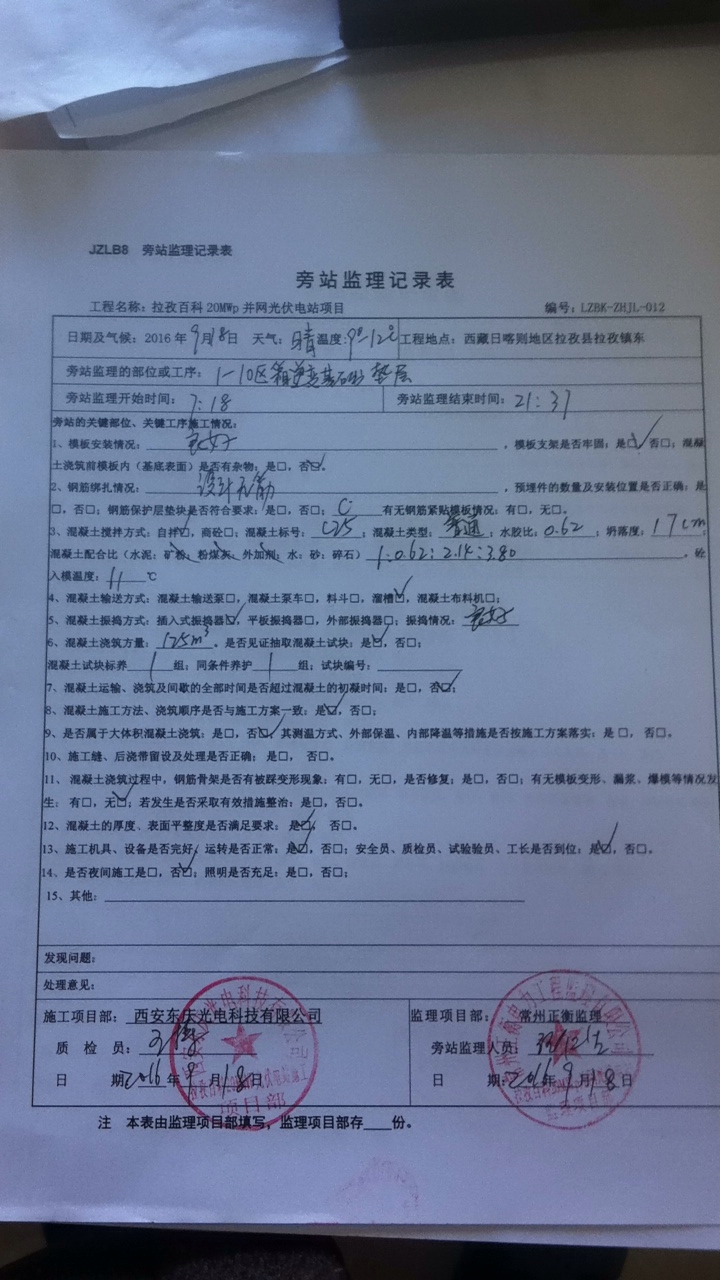 JZLB8 旁站监理记录表
旁站监理记录表
工程名称：拉孜百科20MWp并网光伏电站项目 编号：LZBK-ZHJL-012
日期及气候：2016年9月18日 天气：晴 温度：9°-12℃ 工程地点：西藏日喀则地区拉孜县拉孜镇东
旁站监理的部位或工序：1-10区箱逆变基础 垫层
旁站监理开始时间：7:18 旁站监理结束时间：21:37
旁站的关键部位、关键工序施工情况：
1、模板安装情况：良好，模板支架是否牢固：是☑否□；混凝
土浇筑前模板内（基底表面）是否有杂物：是□，否☑。
2、钢筋绑扎情况：设计无筋，预埋件的数量及安装位置是否正确：是
□，否□；钢筋保护层垫块是否符合要求：是□，否□； 有无钢筋紧贴模板情况：有□，无□。
3、混凝土搅拌方式：自拌☑，商砼□；混凝土标号：C25；混凝土类型：普通；水胶比：0.62；坍落度：17cm
混凝土配合比（水泥：矿粉：粉煤灰：外加剂：水：砂：碎石）1:0.62:2.14:3.80。砼
入模温度：11℃
4、混凝土输送方式：混凝土输送泵□，混凝土泵车□，料斗□，溜槽☑，混凝土布料机□；
5、混凝土振捣方式：插入式振捣器☑，平板振捣器□，外部振捣器□；振捣情况：良好
6、混凝土浇筑方量：125m³。是否见证抽取混凝土试块：是☑，否□；
混凝土试块标养1组；同条件养护1组；试块编号：
7、混凝土运输、浇筑及间歇的全部时间是否超过混凝土的初凝时间：是□，否☑；
8、混凝土施工方法、浇筑顺序是否与施工方案一致：是☑，否□；
9、是否属于大体积混凝土浇筑：是□，否☑，其测温方式、外部保温、内部降温等措施是否按施工方案落实：是□，否□。
10、施工缝、后浇带留设及处理是否正确：是□，否□。
11、混凝土浇筑过程中，钢筋骨架是否有被踩变形现象：有□，无□，是否修复：是□，否□；有无模板变形、漏浆、爆模等情况发
生：有□，无☑；若发生是否采取有效措施整治：是□，否□。
12、混凝土的厚度、表面平整度是否满足要求：是☑，否□。
13、施工机具、设备是否完好，运转是否正常：是☑，否□；安全员、质检员、试验员、工长是否到位：是☑，否□。
14、是否夜间施工是□，否☑；照明是否充足：是□，否□；
15、其他：
发现问题：
处理意见：
施工项目部：西安东庆光电科技有限公司 监理项目部：常州正衡监理
质检员： 旁站监理人员：
日期：2016年9月18日 日期：2016年9月18日
项目部
注 本表由监理项目部填写，监理项目部存 份。